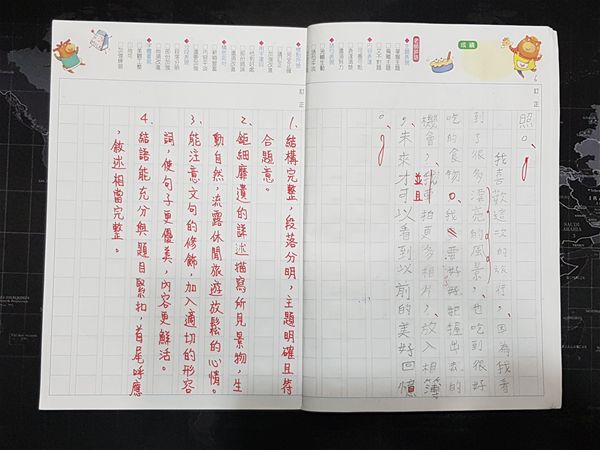 成績
訂正
照。
我喜歡這次的旅行,因為我看
到了很多漂亮的風景,也吃到很好
吃的食物。我要好好把握出去的
機會,我拍更多相片,放入相簿
並且
,未來才可以看到以前的美好回憶
。
老師評語
訂正
1、結構完整,段落分明,主題明確且符
合題意。
2、鉅細靡遺的詳述描寫所見景物,生
動自然,流露休閒旅遊放鬆的心情。
3、能注意文句的修飾,加入適切的形容
詞,使句子更優美,內容更鮮活。
4、結語能充分與題目緊扣,首尾呼應
,敘述相當完整。